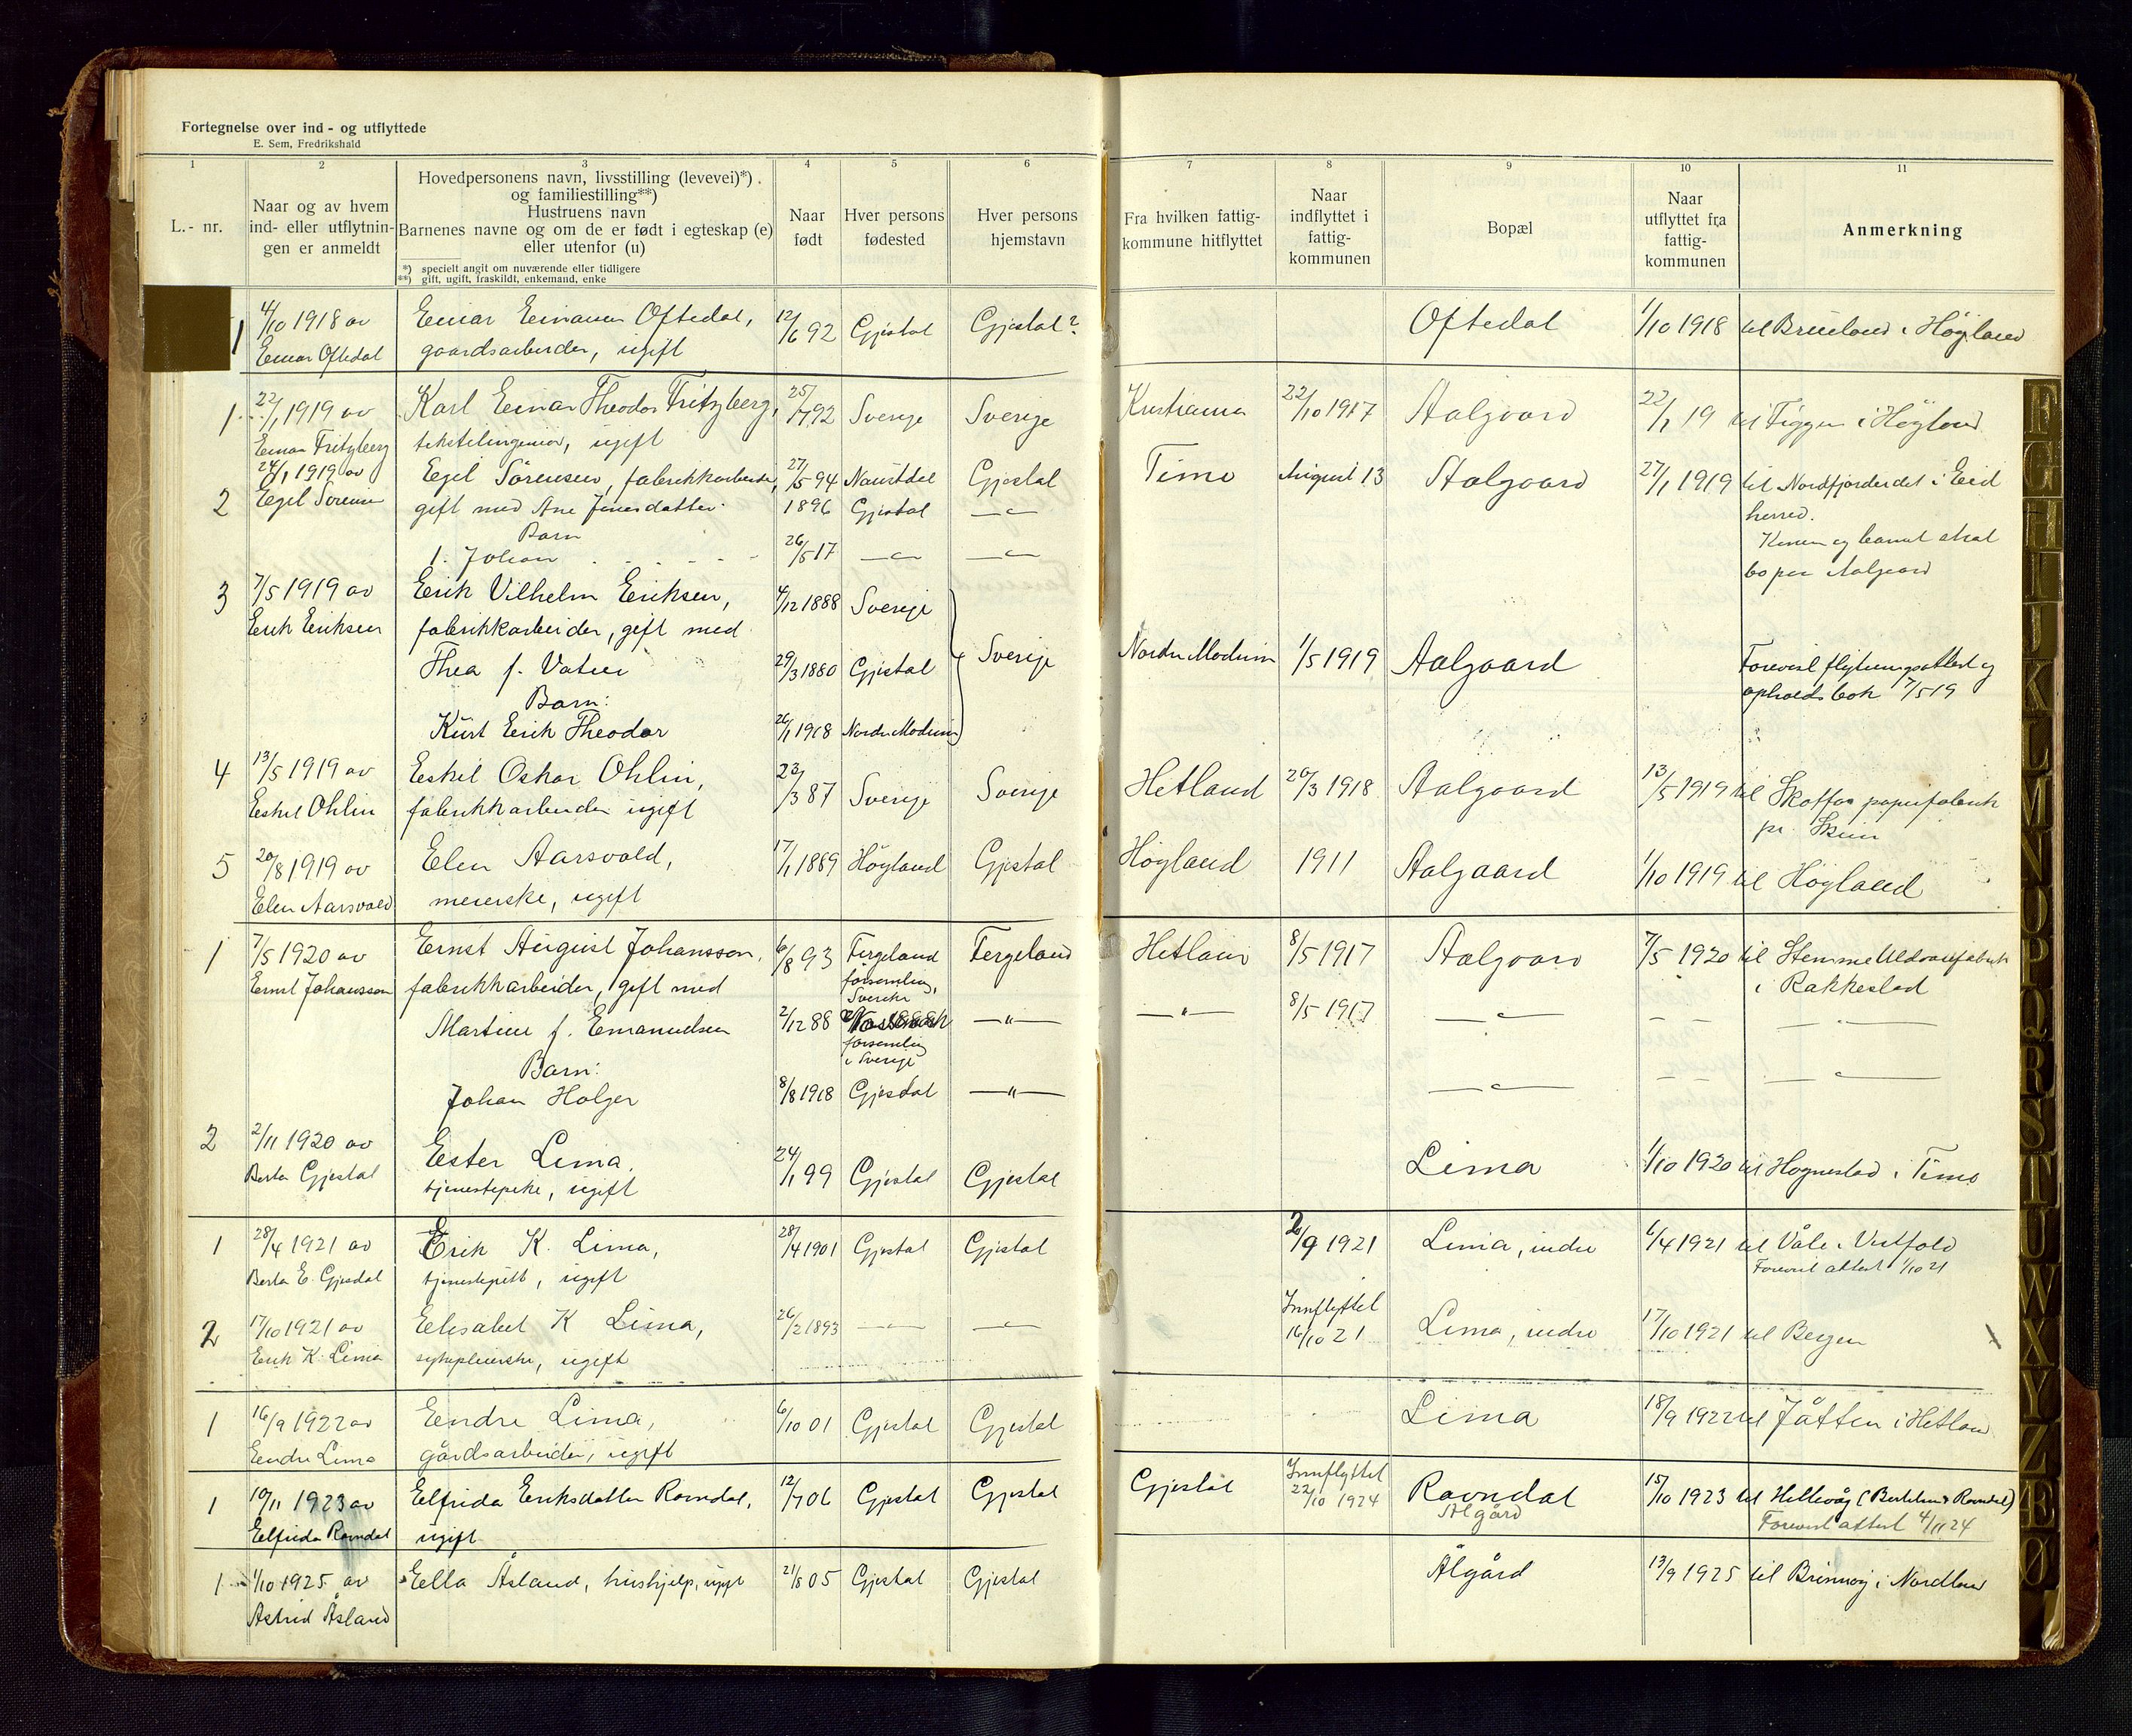 Fortegnelse over ind - og utflyttede
E. Sem, Fredrikshald
1 2 3 4 5 6 7 8 9 10 11
L.- nr.
Naar og av hvem
ind- eller utflytnin-
gen er anmeldt
Hovedpersonens navn, livsstilling (levevei)*)
og familiestilling**)
Hustruens navn
Barnenes navne og om de er født i egteskap (e)
eller utenfor (u)
*) specielt angit om nuværende eller tidligere
**) gift, ugift, fraskildt, enkemand, enke
Naar
født
Hver persons
fødested
Hver persons
hjemstavn
Fra hvilken fattig-
kommune hitflyttet
Naar
indflyttet i
fattig-
kommunen
Bopæl
Naar
utflyttet fra
fattig-
kommunen
Anmerkning
1 4/10 1918 av Einar Einarsen Oftedal, 12/6 92 Gjestal Gjestal? Oftedal 1/10 1918 til Brueland i Høyland
Einar Oftedal gaardsarbeider, ugift
1 22/1 1919 av Karl Einar Theodor Fritzberg, 25/7 92 Sverige Sverige Kristiania 22/10 1917 Aalgaard 22/1 19 til Figgen i Høyland
Einar Fritzberg tekstilingeniør, ugift
24/1 1919 av Egil Sörensen, fabrikkarbeider, 27/5 94 Naustdal Gjestal Time August 13 Aalgaard 27/1 1919 til Nordfjordeidet i Eid
2 Egil Sörensen gift med Ane Jonesdatter 1896 Gjestal —"— herred.
Barn Konen og barnet skal
1. Johan 26/5 17 —"— —"— bo paa Aalgaard
3 7/5 1919 av Erik Vilhelm Eriksen, 4/12 1888 Sverige
Erik Eriksen fabrikkarbeider, gift med
Thea f. Vatne 29/3 1880 Gjestal Sverige Nordre Modum 1/5 1919 Aalgaard Forevist flytningsattest og
Barn: opholdsbok 7/5 19
Kurt Erik Theodor 26/1 1918 Nordre Modum
4 13/5 1919 av Eskil Oskar Ohlin, 23/3 87 Sverige Sverige Hetland 20/3 1918 Aalgaard 13/5 1919 til Skotfos papirfabrik
Eskil Ohlin fabrikkarbeider ugift pr. Skien
5 20/8 1919 av Elen Aarsvold, 17/1 1889 Høyland Gjestal Høyland 1911 Aalgaard 1/10 1919 til Høyland
Elen Aarsvold meierske, ugift
1 7/5 1920 av Ernst August Johansson, 6/8 93 Fergeland Fergeland Hetland 8/5 1917 Aalgaard 7/5 1920 til Stemme Uldvarefabrik
Ernst Johansson fabrikkarbeider, gift med forsamling, i Rakkestad
Sverike
Martine f. Emanuelsen 2/12 88 —"— —"— 8/5 1917 —"— — — —"—
forsamling
i Sverige
Barn:
Johan Holger 8/8 1918 Gjesdal —"— —"— — — —"—
2 2/11 1920 av Ester Lima, 24/1 99 Gjestal Gjestal Lima 1/10 1920 til Hognestad i Time
Berta Gjestal tjenestepike, ugift
1 28/4 1921 av Erik K. Lima, 28/4 1901 Gjestal Gjestal 2/9 1921 Lima, indre 6/4 1921 til Våle i Vestfold
Berta E. Gjesdal tjenestegutt, ugift Forevist attest 1/10 21
2 17/10 1921 av Elisabet K Lima, 26/2 1893 —"— —"— Innflyttet 16/10 21 Lima, indre 17/10 1921 til Bergen
Erik K. Lima sykepleierske, ugift
1 16/9 1922 av Endre Lima, 6/10 01 Gjestal Gjestal Lima 18/9 1922 til Jåtten i Hetland
Endre Lima gårdsarbeider, ugift
1 10/11 1923 av Elfrida Eriksdatter Ravndal, 12/7 06 Gjestal Gjestal Gjestal Innflyttet 22/10 1924 Ravndal 15/10 1923 til Hillevåg (Bertheus Ravndal)
Elfrida Ravndal ugift Ålgård Forevist attest 4/11 24
1 1/10 1925 av Ella Åsland, hushjelp, ugift 21/8 05 Gjestal Gjestal Ålgård 13/9 1925 til Brönnöy i Nordland
Astrid Åsland
F
G
H
I
J
K
L
M
N
O
P
Q
R
S
T
U
W
X
Y
Z
Æ
Ø